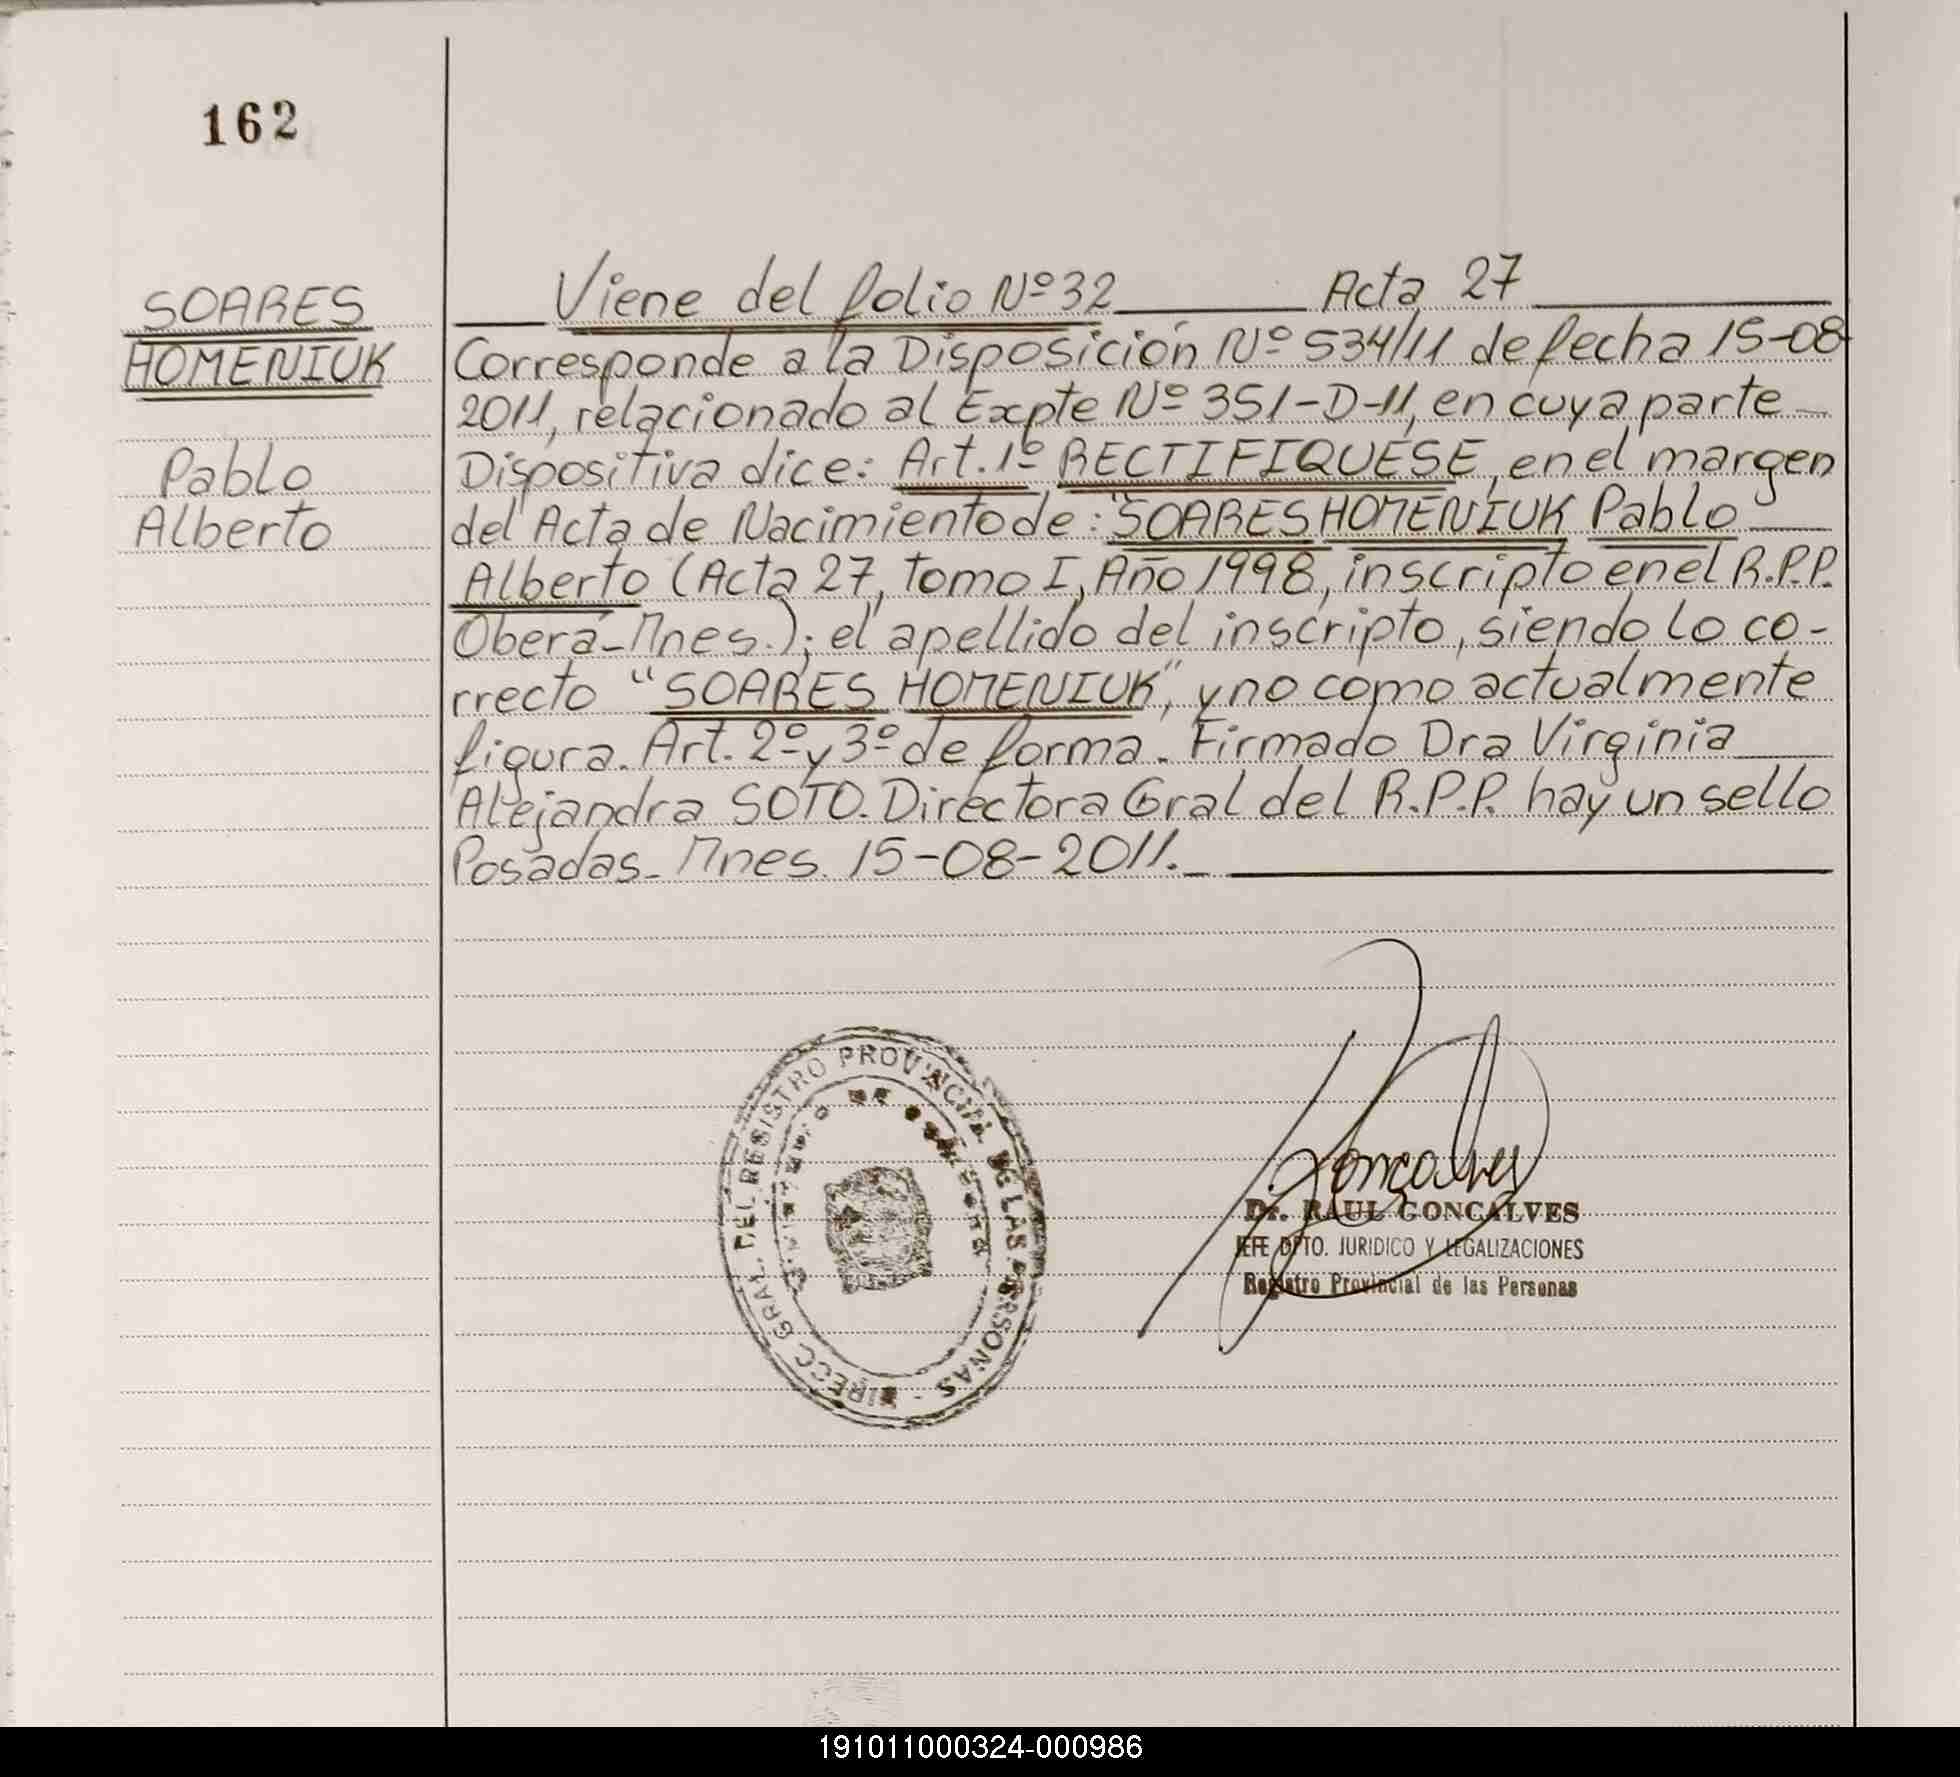 162
SOARES
HOMENIUK
Pablo
Alberto
Viene del folio Nº 32 Acta 27
Corresponde a la Disposición Nº 534/11 de fecha 15-08-
2011, relacionado al Expte Nº 351-D-11, en cuya parte
Dispositiva dice: Art. 1º RECTIFIQUESE, en el margen
del Acta de Nacimiento de: "SOARES HOMENIUK Pablo
Alberto (Acta 27, tomo I, Año 1998, inscripto en el R.P.P.
Oberá-Mnes.); el apellido del inscripto, siendo lo co-
rrecto "SOARES HOMENIUK", y no como actualmente
figura. Art. 2º y 3º de forma. Firmado Dra Virginia
Alejandra SOTO. Directora Gral del R.P.P. hay un sello
Posadas- Mnes. 15-08-2011.-
DIRECC. GRAL. DEL REGISTRO PROVINCIAL DE LAS PERSONAS
Goncalves
Dr. RAUL GONCALVES
JEFE DPTO. JURIDICO Y LEGALIZACIONES
Registro Provincial de las Personas
191011000324-000986